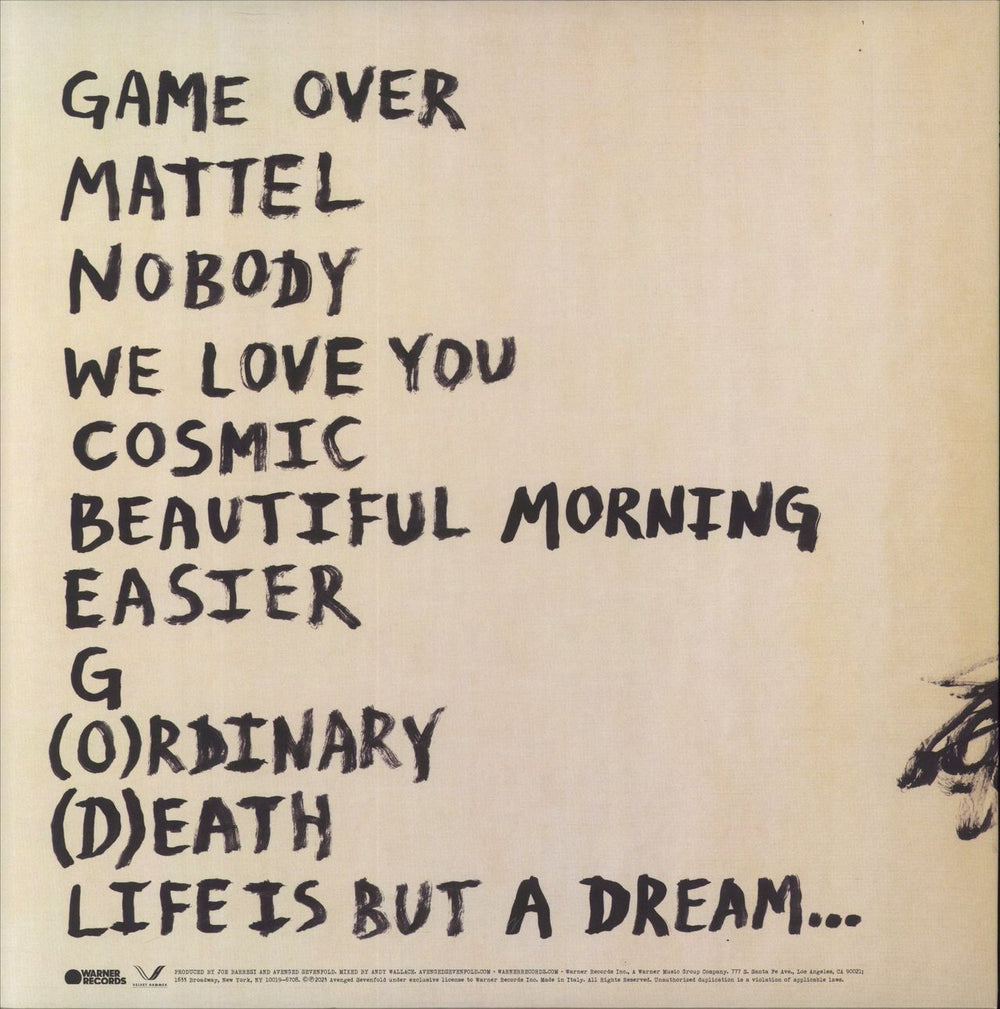 GAME OVER
MATTEL
NOBODY
WE LOVE YOU
COSMIC
BEAUTIFUL MORNING
EASIER
G
(O)RDINARY
(D)EATH
LIFE IS BUT A DREAM...
WARNER RECORDS
VELVET HAMMER
PRODUCED BY JOE BARRESI AND AVENGED SEVENFOLD. MIXED BY ANDY WALLACE. AVENGEDSEVENFOLD.COM • WARNERRECORDS.COM • Warner Records Inc., A Warner Music Group Company. 777 S. Santa Fe Ave., Los Angeles, CA 90021;
1633 Broadway, New York, NY 10019-6708. ©℗2023 Avenged Sevenfold under exclusive license to Warner Records Inc. Made in Italy. All Rights Reserved. Unauthorized duplication is a violation of applicable laws.